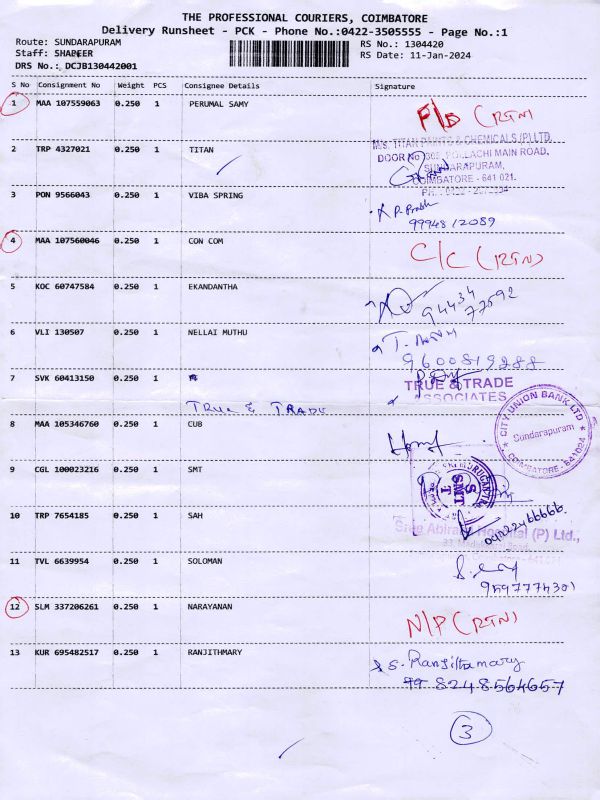 THE PROFESSIONAL COURIERS, COIMBATORE
Delivery Runsheet - PCK - Phone No.:0422-3505555 - Page No.:1
Route: SUNDARAPURAM
Staff: SHAFEER
DRS No.: DCJB130442001
RS No.: 1304420
RS Date: 11-Jan-2024
S No Consignment No Weight PCS Consignee Details Signature
1 MAA 107559063 0.250 1 PERUMAL SAMY F/D (RTN)
2 TRP 4327021 0.250 1 TITAN
M/S. TITAN PAINTS & CHEMICALS (P) LTD.
DOOR No 365 POLLACHI MAIN ROAD,
SUNDARAPURAM,
COIMBATORE - 641 021.
3 PON 9566043 0.250 1 VIBA SPRING
99948 12089
4 MAA 107560046 0.250 1 CON COM C/C (RTN)
5 KOC 60747584 0.250 1 EKANDANTHA
94434
77592
6 VLI 130507 0.250 1 NELLAI MUTHU
9600819288
7 SVK 60413150 0.250 1
TRUE & TRADE
TRUE & TRADE
ASSOCIATES
8 MAA 105346760 0.250 1 CUB
CITY UNION BANK LTD
Sundarapuram
COIMBATORE - 641024
9 CGL 100023216 0.250 1 SMT
SMT
10 TRP 7654185 0.250 1 SAH
Sree Abirami Hospital (P) Ltd.,
11 TVL 6639954 0.250 1 SOLOMAN
9597774301
12 SLM 337206261 0.250 1 NARAYANAN N/P (RTN)
13 KUR 695482517 0.250 1 RANJITHMARY
S. Ranjithamary
8248564657
3